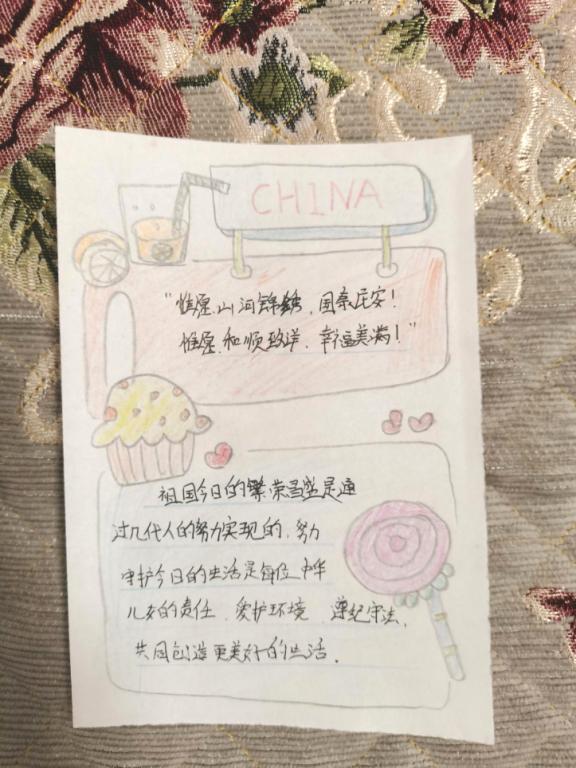 CHINA
"惟愿.山河锦绣,国泰民安!
惟愿.和顺致祥.幸福美满!"
祖国今日的繁荣昌盛是通
过几代人的努力实现的.努力
守护今日的生活是每位中华
儿女的责任.爱护环境.遵纪守法,
共同创造更美好的生活.